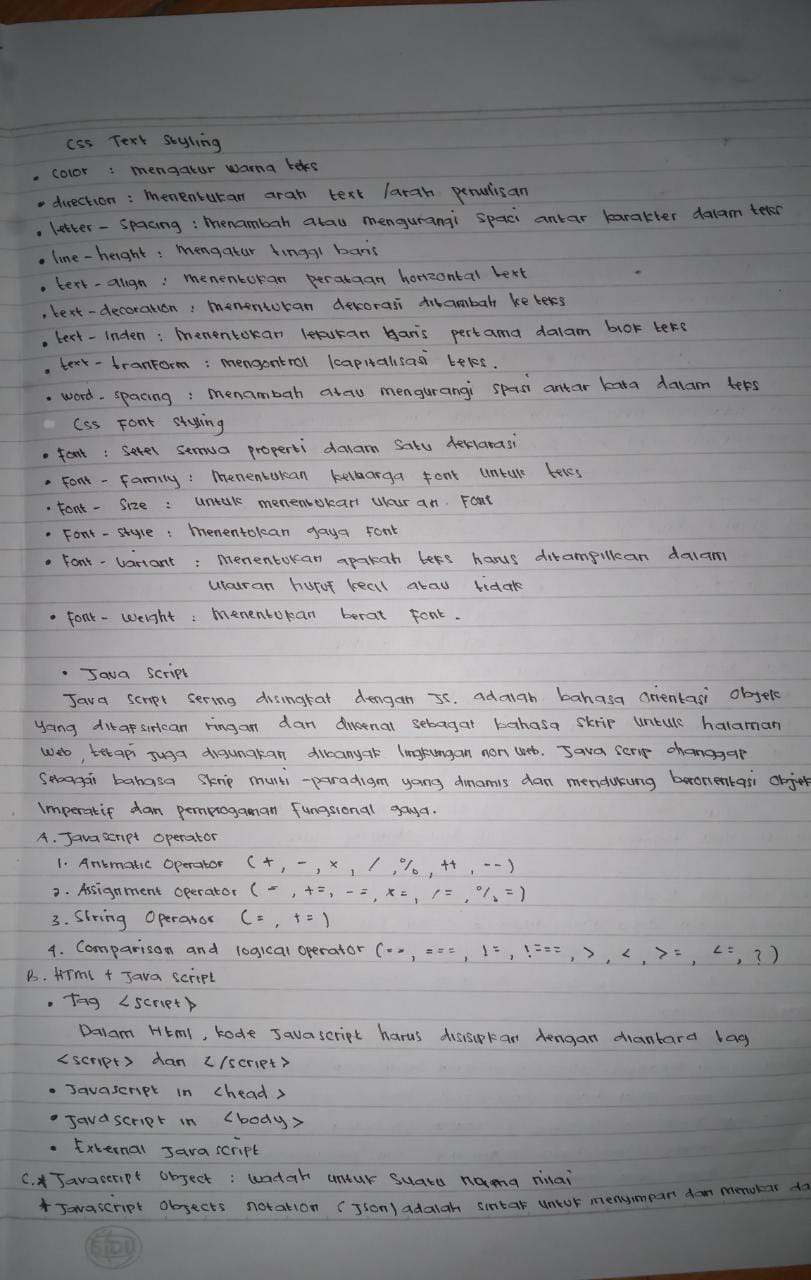 Css Text Styling
• Color : mengatur warna teks
• direction : menentukan arah text / arah penulisan
• letter - spacing : menambah atau mengurangi spaci antar karakter dalam teks
• line - height : mengatur tinggi baris
• text - align : menentukan perataan horizontal text
• text - decoration : menentukan dekorasi ditambah ke teks
• text - Inden : menentukan lekukan baris pertama dalam blok teks
• text - tranform : mengontrol kapitalisasi teks.
• word - spacing : menambah atau mengurangi spasi antar kata dalam teks
Css Font Styling
• Font : Setel semua properti dalam satu deklarasi
• Font - Family : menentukan keluarga font untuk teks
• Font - Size : untuk menentukan ukuran Font
• Font - style : menentukan gaya Font
• Font - Variant : menentukan apakah teks harus ditampilkan dalam
ukuran huruf kecil atau tidak
• Font - weight : menentukan berat Font.
• Java Script
Java Script sering disingkat dengan JS. adalah bahasa orientasi Objek
yang ditafsirkan ringan dan dikenal sebagai bahasa skrip untuk halaman
web, tetapi juga digunakan dibanyak lingkungan non web. Java Scrip dianggap
Sebagai bahasa Skrip multi - paradigm yang dinamis dan mendukung berorientasi Objek
Imperatif dan pemprogaman Fungsional gaya.
A. Javascript Operator
1. Aritmatic Operator (+, -, x, /, %, ++, --)
2. Assignment Operator (=, +=, -=, x=, /=, %=)
3. String Operator (=, +=)
4. Comparison and logical operator (==, ===, !=, !===, >, <, >=, <=, ?)
B. HTml + Java Script
• Tag <script>
Dalam Html, kode Javascript harus disisipkan dengan diantara tag
<script> dan </script>
• Javascript in <head>
• Javascript in <body>
• External Java script
C. * Javascript Object : wadah untuk suatu nama nilai
* Javascript Objects notation (Json) adalah sintak untuk menyimpan dan menukar da
SIDU